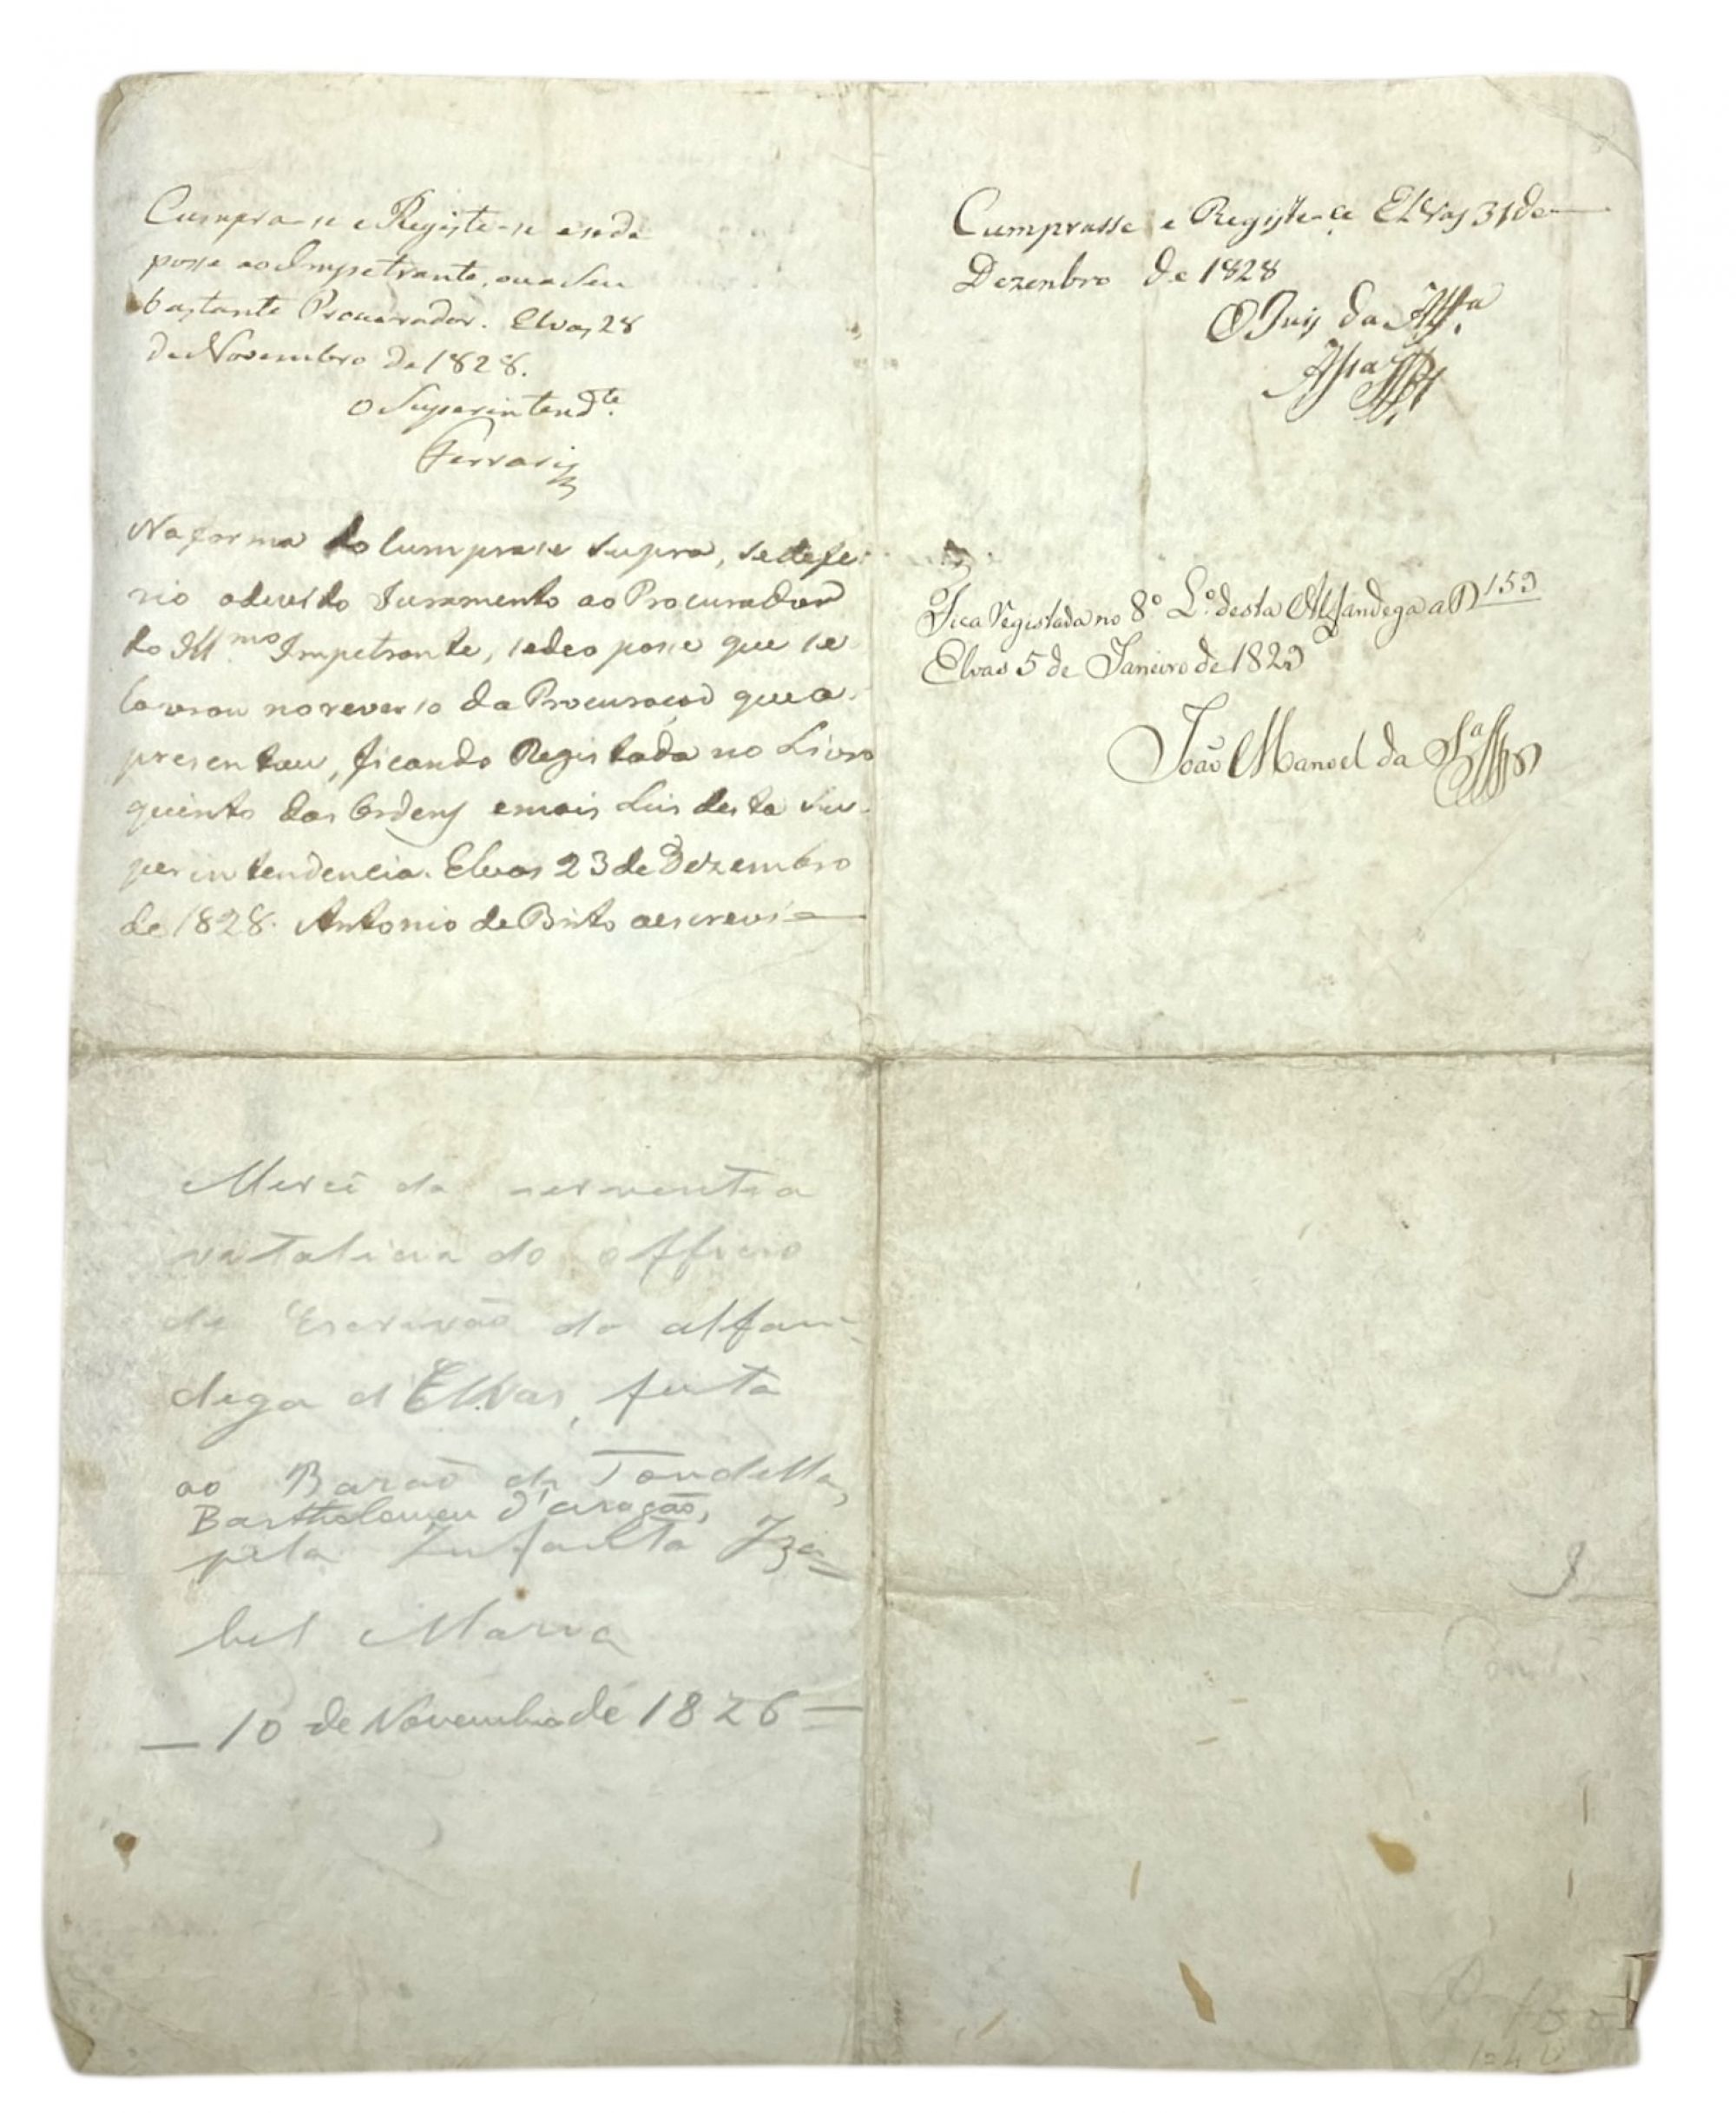 Cumpra-se e Registe-se e se dê
posse ao Impetrante, ou a seu
bastante Procurador. Elvas 28
de Novembro de 1828.
O Superintend.te
Na forma do Cumprase supra, se defe-
rio o devido Juramento ao Procurador
do Ill.mo Impetrante, se deo posse que se
lavrou no reverso da Procuraçaõ que a-
presentou, ficando Registada no Livro
quinto das Ordens e mais Leis desta Su-
perintendencia. Elvas 23 de Dezembro
de 1828. Antonio de Brito o escrevi
Cumprasse e Registe-ce Elvas 31 de
Dezenbro de 1828
O Juis da Alf.a
Fica Registada no 8º L.º desta Alfandega a P 159
Elvas 5 de Janeiro de 1829
João Manoel da S.a
Mercê da serventia
vitalicia do officio
de Escrivão da alfan-
dega d'Elvas, feita
ao Barão de Tondella,
Bartholomeu d'aragão,
pela Infanta Iza=
bel Maria
— 10 de Novembro de 1826 =